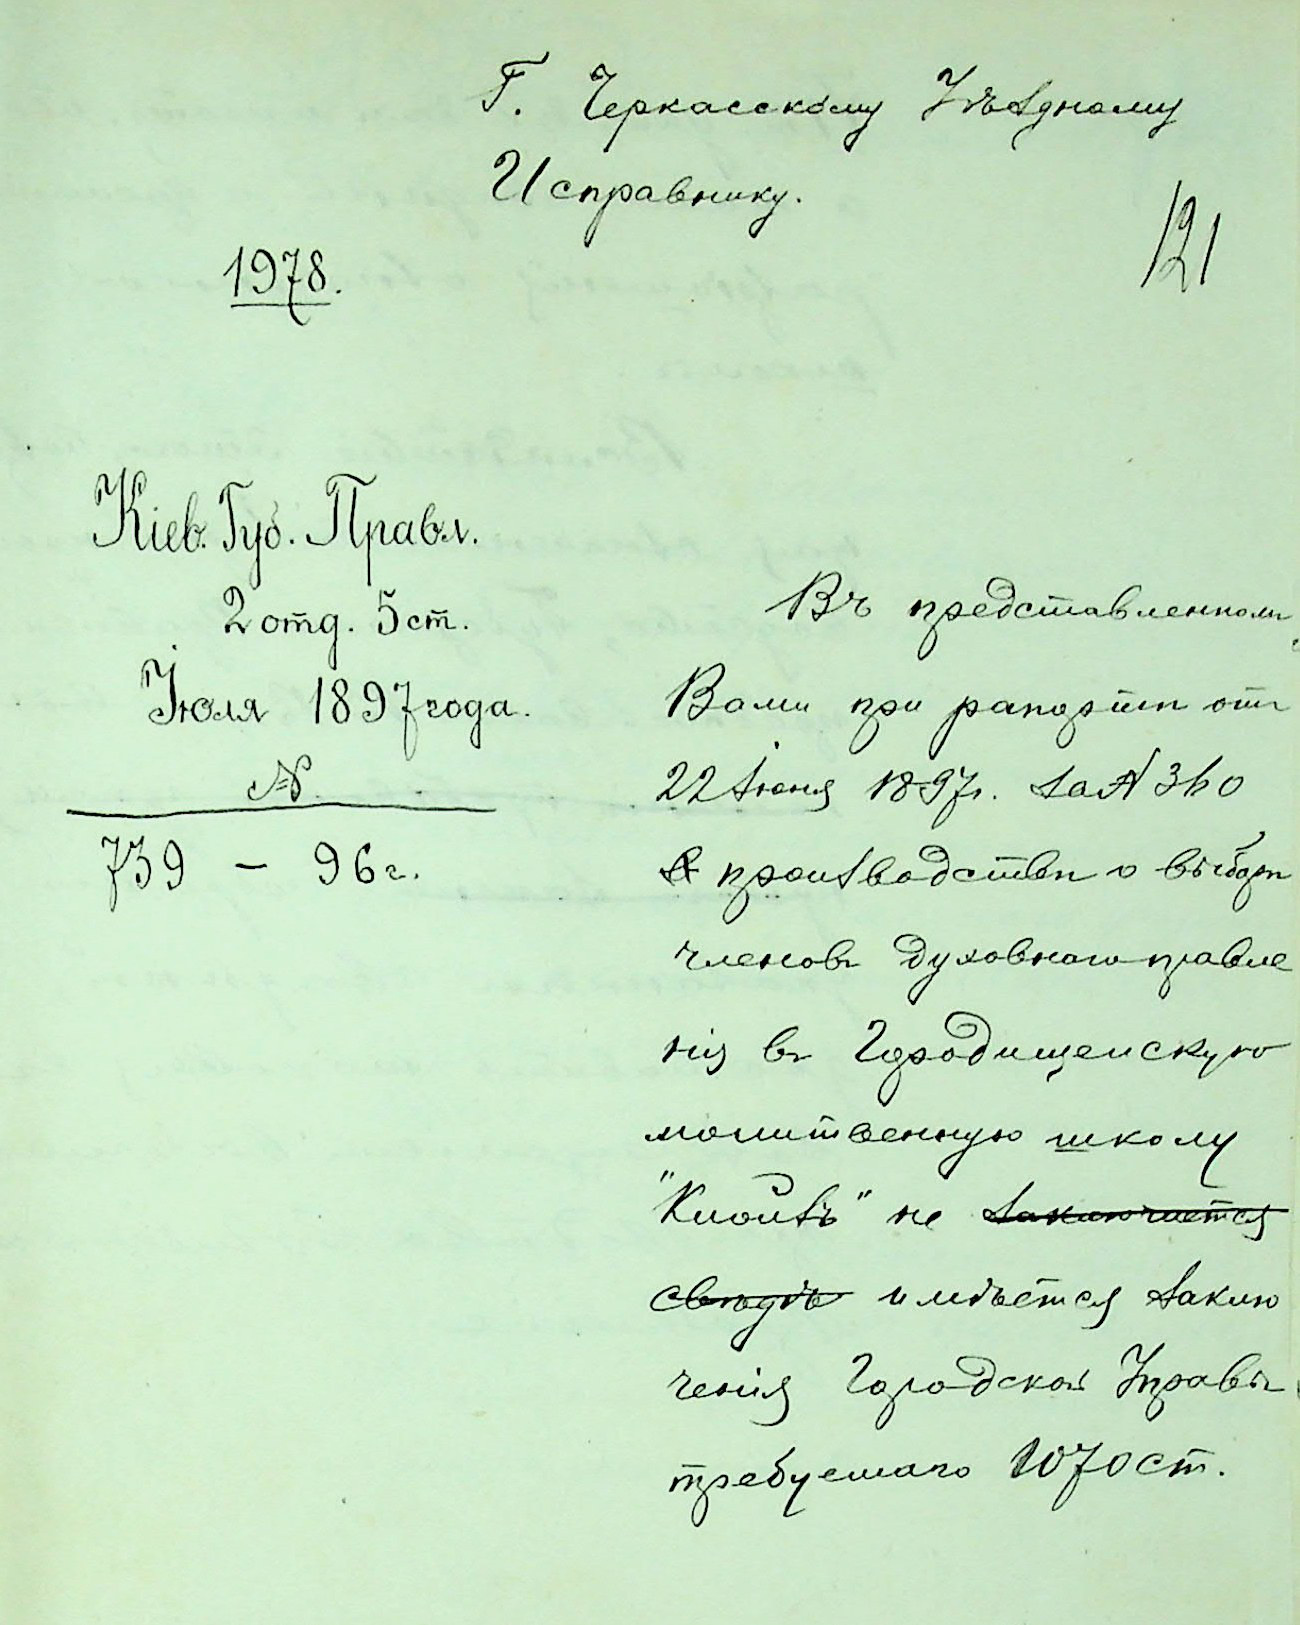 Г. Черкасскому Уѣздному
Исправнику.
121
1978.
Кіев. Губ. Правл.
2 отд. 5 ст.
Іюля 1897 года.
№
739 – 96 г.
Въ представленномъ
Вами при рапортѣ отъ
22 Іюня 1897 г. за № 360
производствѣ о выборѣ
членовъ духовнаго правле
нія въ Городищенскую
молитвенную школу
"Клойзъ" не заключается
свѣдѣ имѣется заклю
ченія Городской Управы
требуемаго 1070 ст.